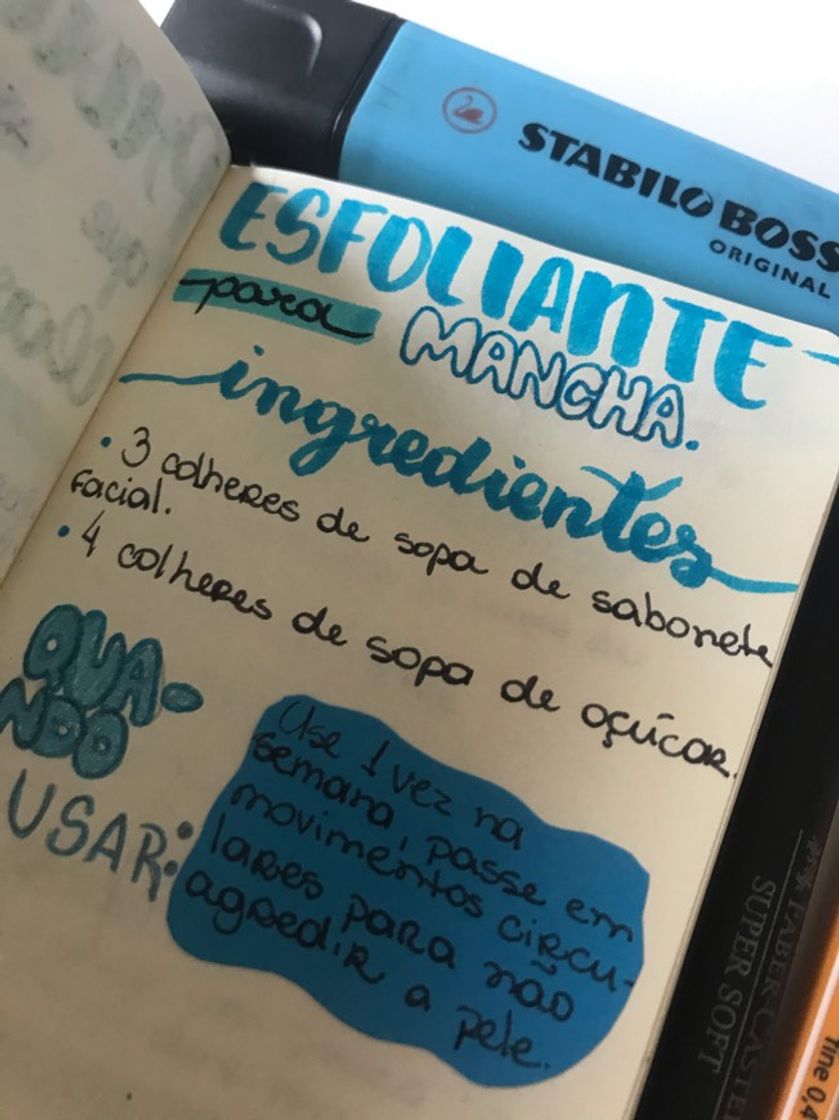 STABILO BOSS
ORIGINAL
ESFOLIANTE
para
MANCHA.
ingredientes
• 3 colheres de sopa de sabonete
facial.
• 4 colheres de sopa de açúcar.
QUA-
NDO
USAR:
Use 1 vez na
semana, passe em
movimentos circu-
lares para não
agredir a pele.
FABER-CASTE
SUPER SOFT
fine 0,4